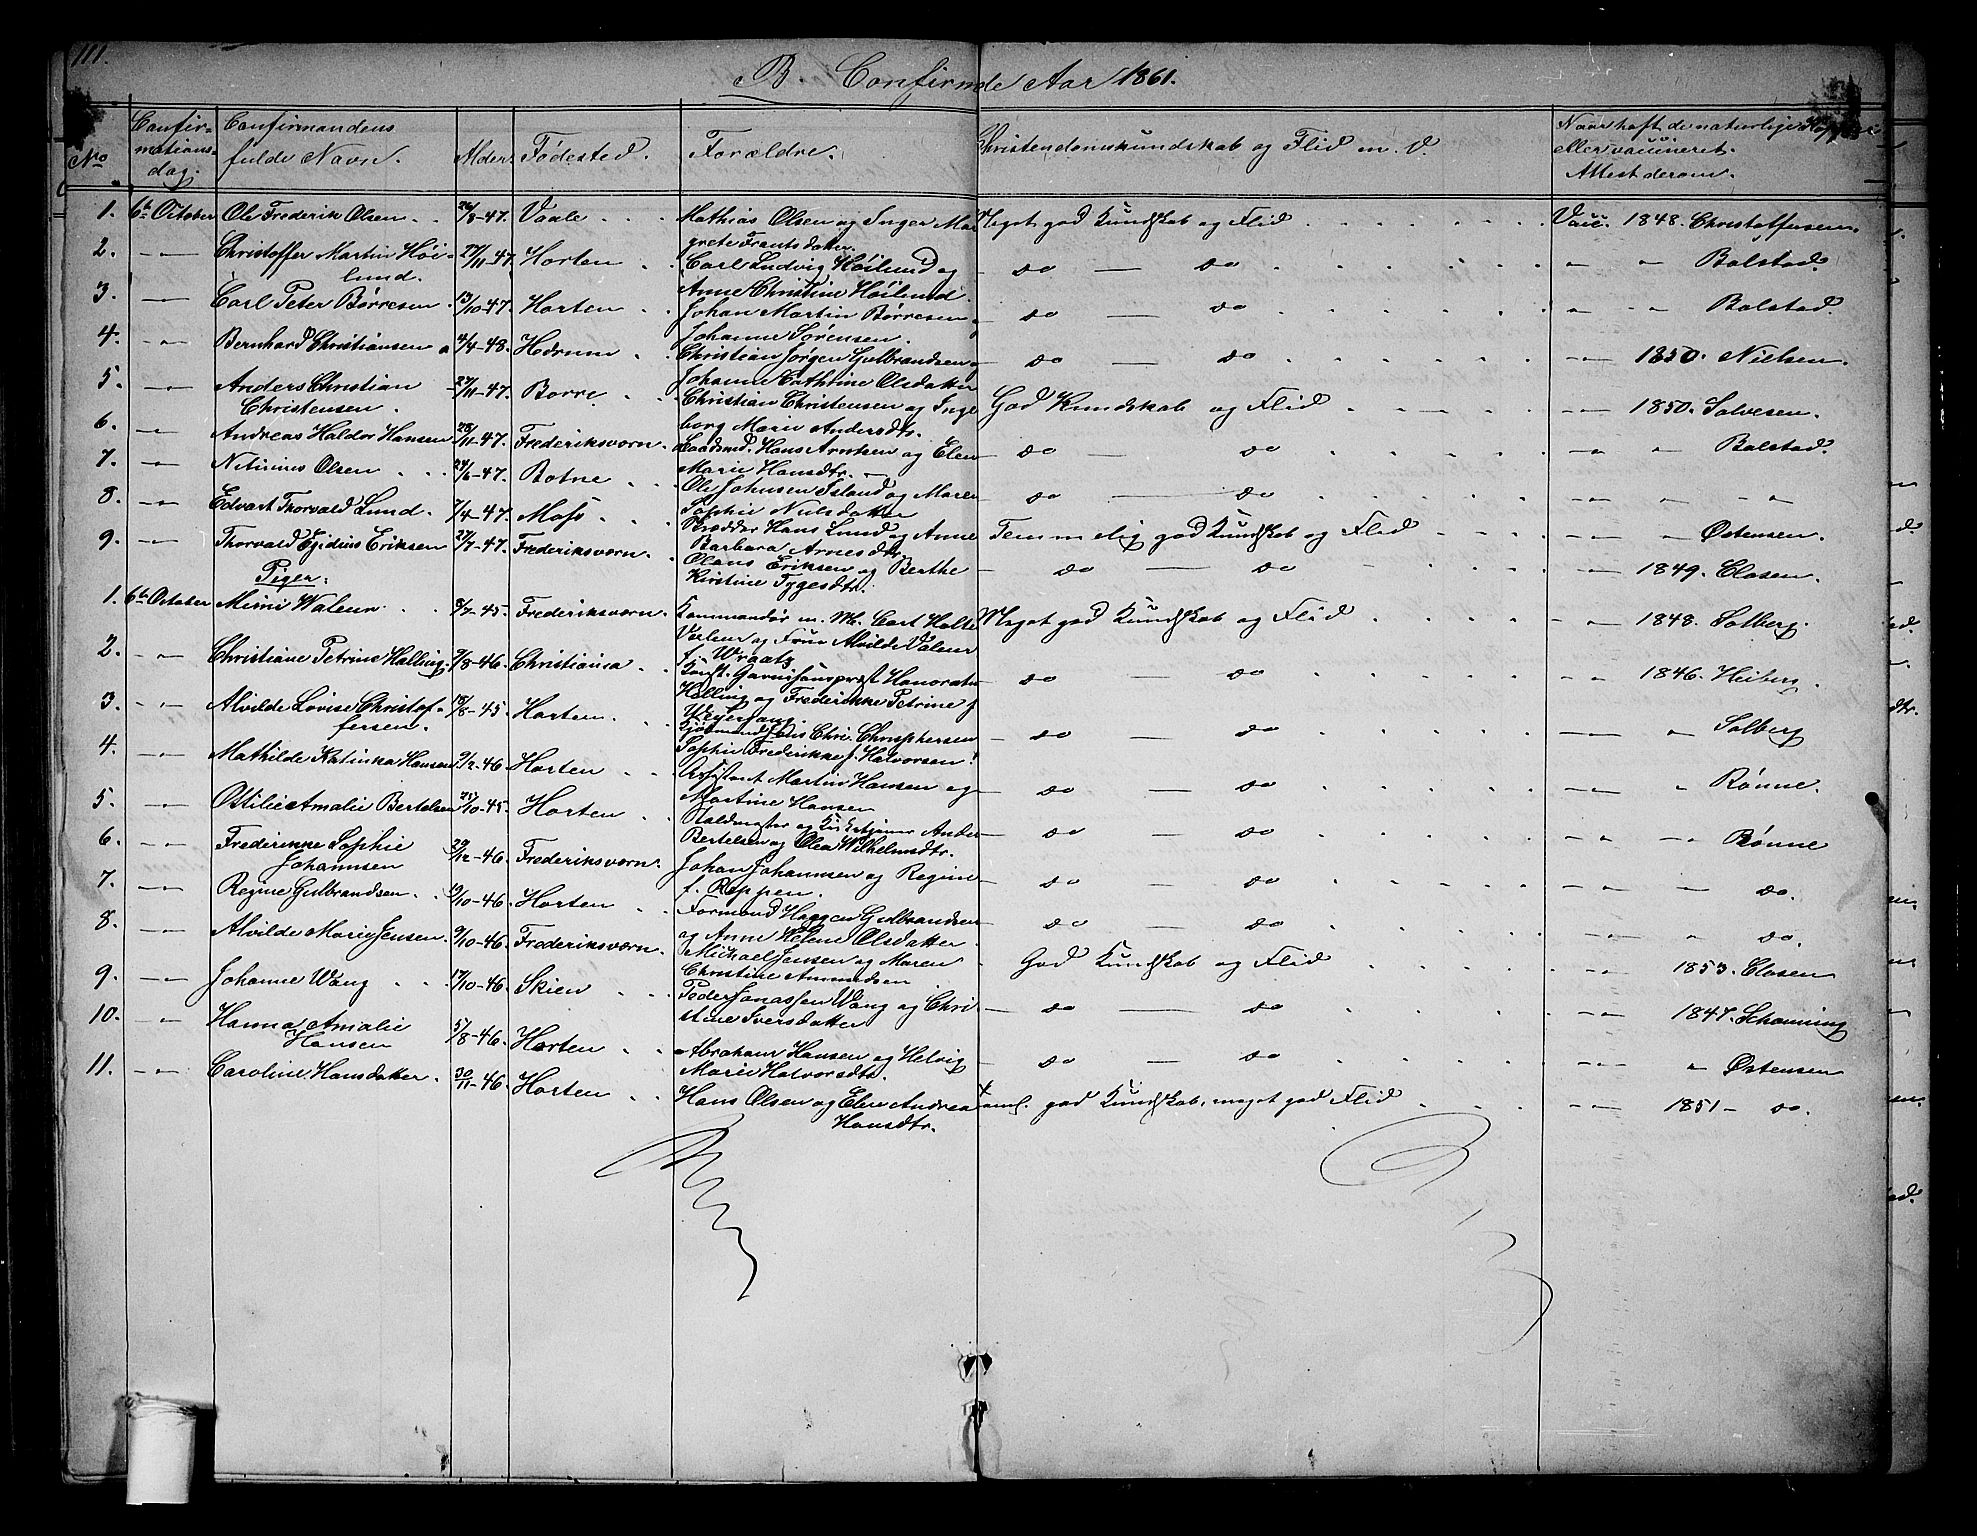 111.
B. Confirmde Aar 1861.
No
Confirmationsdag.
Confirmandens fulde Navn.
Alder
Fødested.
Forældre.
Christendomskundskab og Flid m. V.
Naar haft de naturlige Kopper eller vaccineret. Attest derom.
1. 6te October Ole Frederik Olsen 26/8-47. Vaale Mathias Olsen og Inger Margrete Frantsdatter. Meget god Kundskab og Flid Vacc. 1848. Christoffersen.
2. -"- Christoffer Martin Höilund. 27/11-47. Horten Carl Ludvig Höilund og Anne Christine Höilund. do — do " - " Bolstad.
3. -"- Carl Peter Börresen 13/10-47. Horten Johan Martin Börresen og Johanne Sørensen. do — do " - " Bolstad.
4. -"- Bernhard Christiansen 4/4-48. Hedrum Christian Jørgen Gulbrandsen og Johanne Cathrine Olsdatter do — do -"- 1850. Nielsen.
5. -"- Anders Christian Christensen. 27/11-47. Borre Christian Christensen og Ingeborg Marie Andersdtr. God Kundskab og Flid -"- 1850. Salvesen.
6. -"- Andreas Haldor Hansen 28/11-47. Frederiksværn. Hans Arntsen og Elen Marie Hansdtr. do — do -"- " Bolstad.
7. -"- Olsen 24/6-47. Botne Ole Johnsen Island og Maren Sophie Nielsdatter do — do -"- " "
8. -"- Edvart Thorvald Lund 7/4-47. Moss Hans Lund og Anne Barbara Arnesdtr. Temmelig god Kundskab og Flid -"- " Østensen.
9. -"- Thorvald Egidius Eriksen 27/7-47. Frederiksværn. Olaus Eriksen og Berthe Kirstine Tygesdtr. do — do -"- 1849. Closen.
Piger.
1. 6te October Mimi Waleur 9/7-45. Frederiksværn. Kommandör m. M. Carl Holte Valeur og Frue Alvilde Valeur f. Wraatz Meget god Kundskab og Flid -"- 1848. Solberg.
2. -"- Christiane Petrine Halling 9/8-46. Christiania Const. Garnisonspræst Honoratus Halling og Frederikke Petrine f. do — do -"- 1846. Heiberg.
3. -"- Alvilde Lovise Christoffersen. 18/8-45. Horten. Chr. Christphersen Sophie Frederikke f. Halvorsen. do — do -"- " Solberg
4. -"- Mathilde Katinka Hansen 9/2-46. Horten Assistent Martin Hansen og Martine Hansen do — do -"- " Rønne.
5. -"- Ottilie Amalie Bertelsen 25/10-45. Horten og Kirketjener Anders Bertelsen og Olea Wilhelmsdtr. do — do -"- " Rønne
6. -"- Frederikke Sophie Johannsen 29/12-46. Frederiksværn. Johan Johannsen og Regine f. Reppen. do — do -"- — do.
7. -"- Regine Gulbrandsen. 19/10-46. Horten Formand Haagen Gulbrandsen og Anne Helene Olsdatter. do — do -"- " do.
8. -"- Alvilde Marie Jensen. 9/10-46. Frederiksværn. Michael Jensen og Maren Christine Amundsen God Kundskab og Flid -"- 1853. Closen
9. -"- Johanne Wang 17/10-46. Skien Peder Jonassen Wang og Christine Iversdatter do — do -"- 1847. Schanning
10. -"- Hanna Amalie Hansen 5/8-46. Horten Abraham Hansen og Helvig Marie Halvorsdtr. do — do -"- " Østensen
11. -"- Caroline Hansdatter. 30/11-46. Horten Hans Olsen og Elen Andrea Hansdtr. Teml. god Kundskab, meget god Flid -"- 1851 - do.